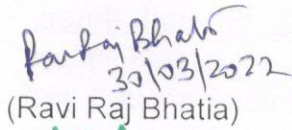 Ravi Raj Bhati
30/03/2022
(Ravi Raj Bhatia)